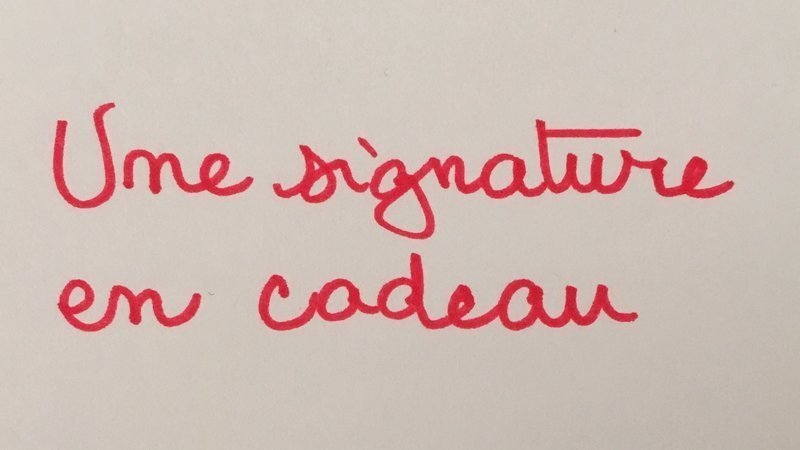 Une signature
en cadeau